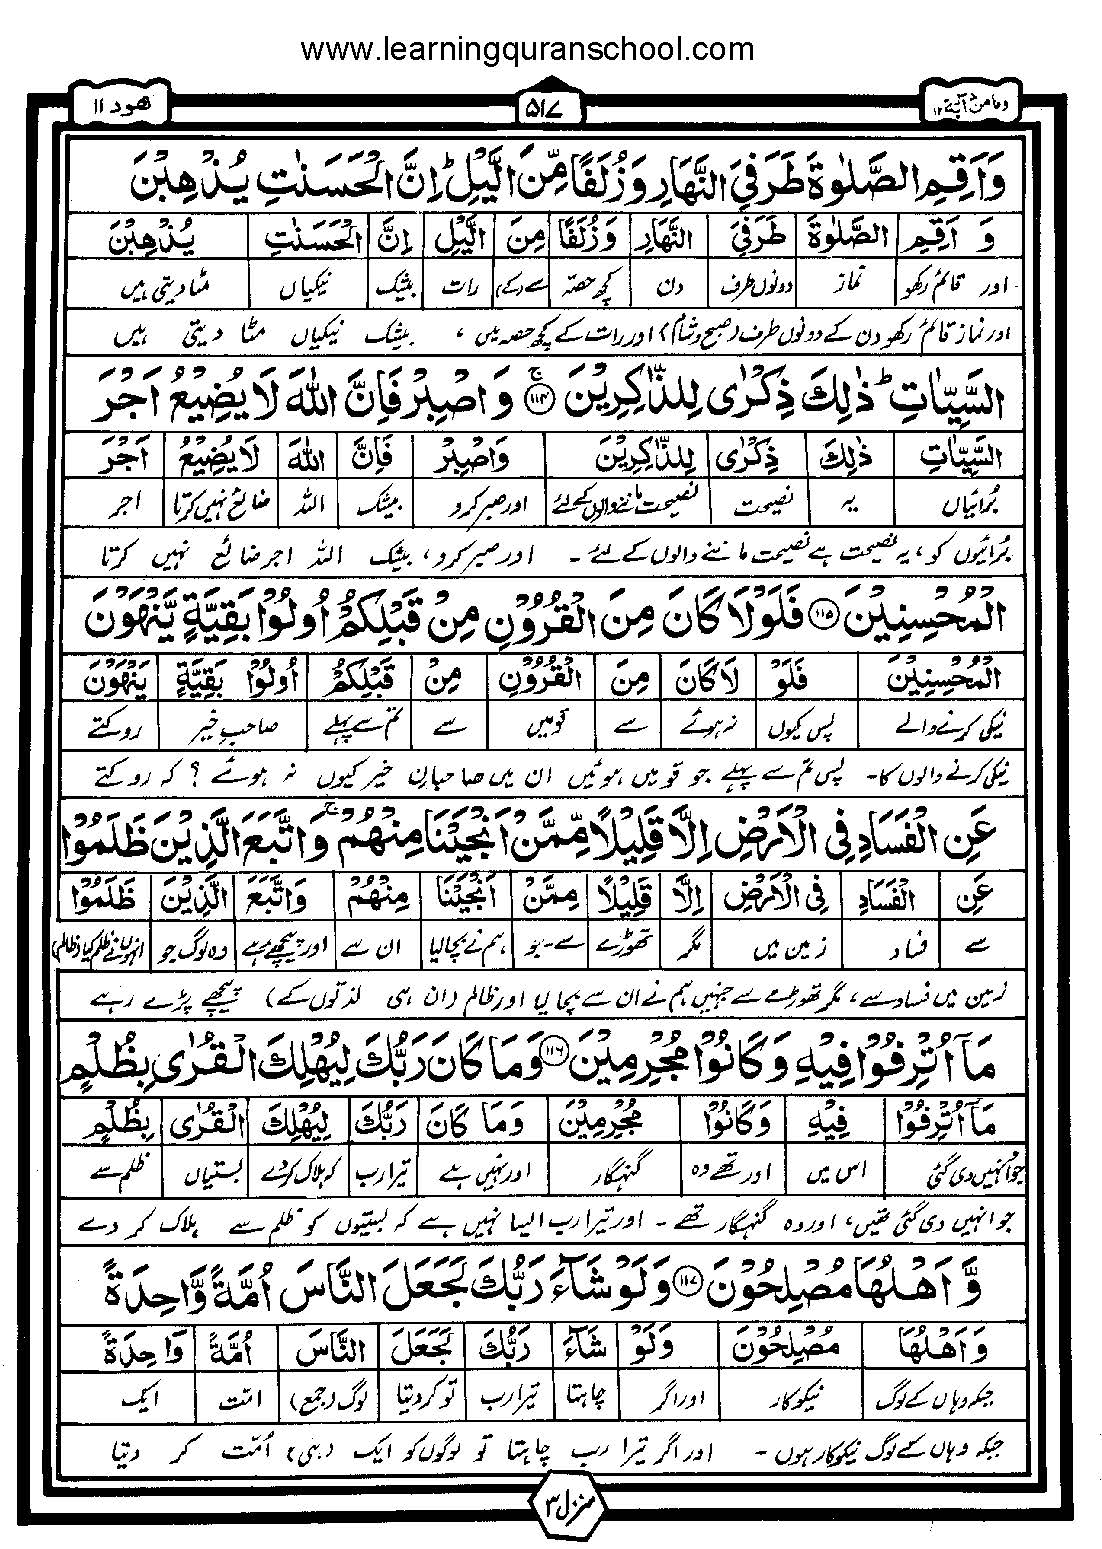 www.learningquranschool.com
ھود ۱۱
۵۱۷
ومامن دآبة ۱۲
وَاَقِمِ الصَّلٰوةَ طَرَفَیِ النَّهَارِ وَزُلَفًا مِّنَ الَّیْلِ ؕ اِنَّ الْحَسَنٰتِ یُذْهِبْنَ
وَ اَقِمِ الصَّلٰوةَ طَرَفَیِ النَّهَارِ وَزُلَفًا مِنَ الَّیْلِ اِنَّ الْحَسَنٰتِ یُذْهِبْنَ
اور قائم رکھو نماز دونوں طرف دن کچھ حصہ سے (کے) رات بیشک نیکیاں مٹا دیتی ہیں
اور نماز قائم رکھو دن کے دونوں طرف (صبح و شام) اور رات کے کچھ حصہ میں ، بیشک نیکیاں مٹا دیتی ہیں
السَّیِّاٰتِ ؕ ذٰلِكَ ذِكْرٰی لِلذّٰكِرِیْنَ ۚ﴿۱۱۴﴾ وَاصْبِرْ فَاِنَّ اللّٰهَ لَا یُضِیْعُ اَجْرَ
السَّیِّاٰتِ ذٰلِكَ ذِكْرٰی لِلذّٰكِرِیْنَ وَاصْبِرْ فَاِنَّ اللّٰهَ لَا یُضِیْعُ اَجْرَ
برائیاں یہ نصیحت نصیحت ماننے والوں کیلئے اور صبر کرو بیشک اللہ ضائع نہیں کرتا اجر
برائیوں کو ، یہ نصیحت ہے نصیحت ماننے والوں کے لئے ۔ اور صبر کرو ، بیشک اللہ اجر ضائع نہیں کرتا
الْمُحْسِنِیْنَ ﴿۱۱۵﴾ فَلَوْلَا كَانَ مِنَ الْقُرُوْنِ مِنْ قَبْلِكُمْ اُولُوْا بَقِیَّةٍ یَّنْهَوْنَ
الْمُحْسِنِیْنَ فَلَوْ لَا كَانَ مِنَ الْقُرُوْنِ مِنْ قَبْلِكُمْ اُولُوْا بَقِیَّةٍ یَنْهَوْنَ
نیکی کرنے والے پس کیوں نہ ہوئے سے قومیں سے تم سے پہلے صاحبِ خیر روکتے
نیکی کرنے والوں کا ۔ پس تم سے پہلے جو قومیں ہوئیں ان میں صاحبانِ خیر کیوں نہ ہوئے ؟ کہ روکتے
عَنِ الْفَسَادِ فِی الْاَرْضِ اِلَّا قَلِیْلًا مِّمَّنْ اَنْجَیْنَا مِنْهُمْ ۚ وَاتَّبَعَ الَّذِیْنَ ظَلَمُوْا
عَنِ الْفَسَادِ فِی الْاَرْضِ اِلَّا قَلِیْلًا مِمَّنْ اَنْجَیْنَا مِنْهُمْ وَاتَّبَعَ الَّذِیْنَ ظَلَمُوْا
سے فساد زمین میں مگر تھوڑے سے ۔ جو ہم نے بچا لیا ان سے اور پیچھے رہے وہ لوگ جو انہوں نے ظلم کیا (ظالم)
زمین میں فساد سے ، مگر تھوڑے سے جنہیں ہم نے ان سے بچا لیا اور ظالم (ان ہی لذتوں کے) پیچھے پڑے رہے
مَاۤ اُتْرِفُوْا فِیْهِ وَكَانُوْا مُجْرِمِیْنَ ﴿۱۱۶﴾ وَمَا كَانَ رَبُّكَ لِیُهْلِكَ الْقُرٰی بِظُلْمٍ
مَاۤ اُتْرِفُوْا فِیْهِ وَكَانُوْا مُجْرِمِیْنَ وَمَا كَانَ رَبُّكَ لِیُهْلِكَ الْقُرٰی بِظُلْمٍ
جو انہیں دی گئی اس میں اور تھے وہ گنہگار اور نہیں ہے تیرا رب کہ ہلاک کردے بستیاں ظلم سے
جو انہیں دی گئی تھیں ، اور وہ گنہگار تھے ۔ اور تیرا رب ایسا نہیں ہے کہ بستیوں کو ظلم سے ہلاک کر دے
وَّاَهْلُهَا مُصْلِحُوْنَ ﴿۱۱۷﴾ وَلَوْ شَآءَ رَبُّكَ لَجَعَلَ النَّاسَ اُمَّةً وَّاحِدَةً
وَاَهْلُهَا مُصْلِحُوْنَ وَلَوْ شَآءَ رَبُّكَ لَجَعَلَ النَّاسَ اُمَّةً وَاحِدَةً
جبکہ وہاں کے لوگ نیکوکار اور اگر چاہتا تیرا رب تو کردیتا لوگ (جمع) امت ایک
جبکہ وہاں کے لوگ نیکوکار ہوں ۔ اور اگر تیرا رب چاہتا تو لوگوں کو ایک (ہی) اُمت کر دیتا
منزل ۳